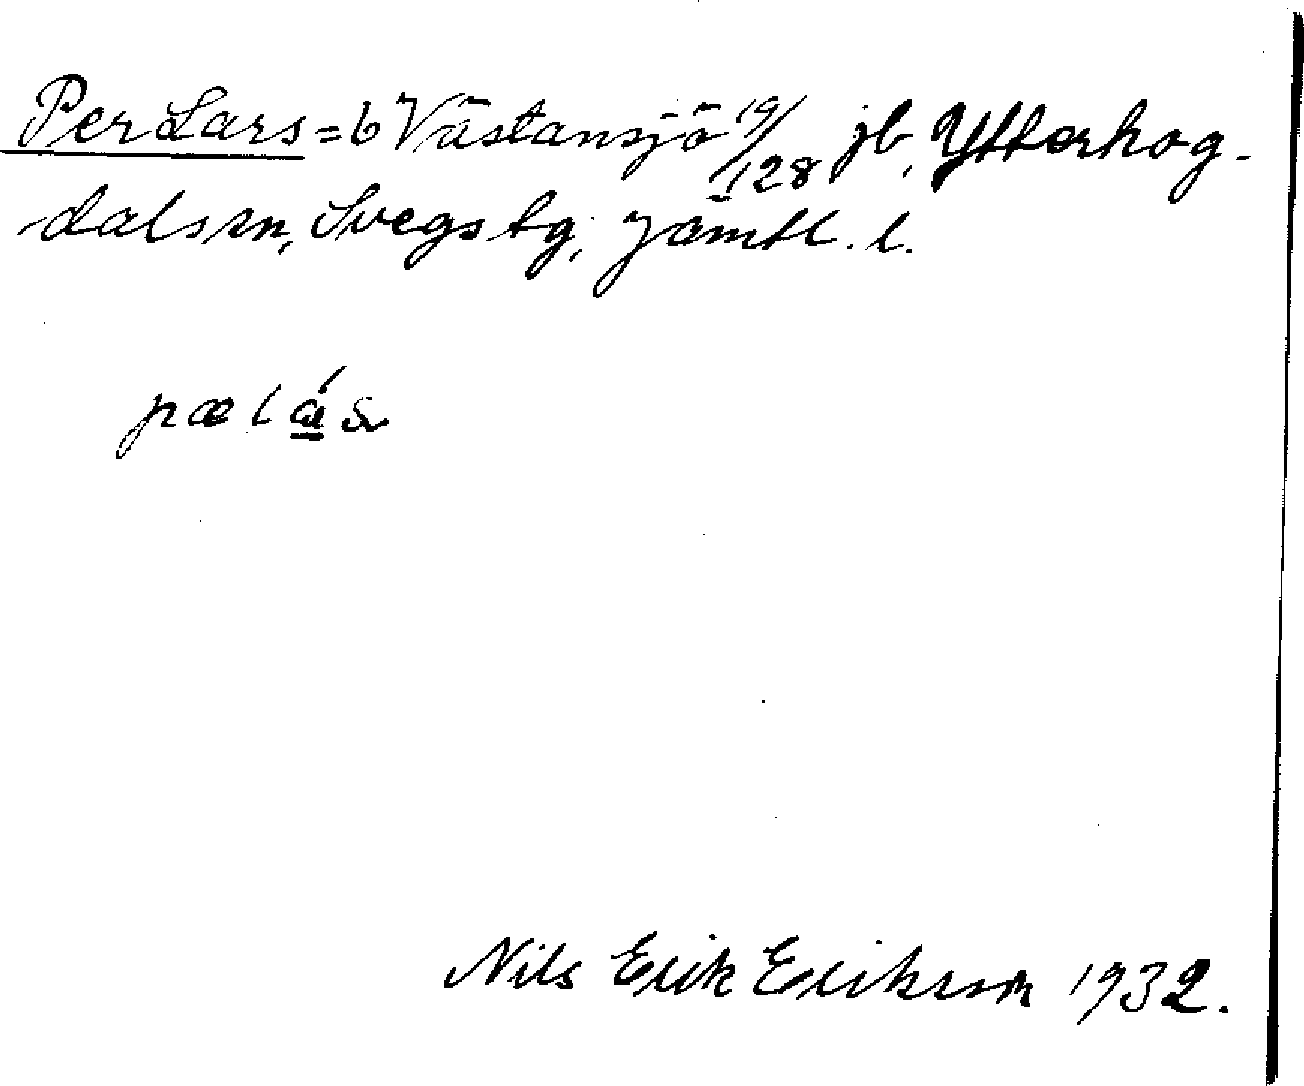 Per Lars = b Västansjö 19/128 jb, Ytterhog-
dal sn, Svegs tg, Jämtl. l.
pæl á s
Nils Erik Erikson 1932.